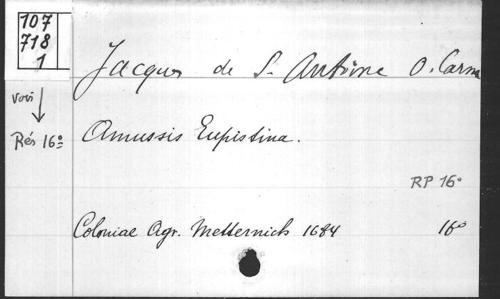 107
718
1
Jacques de S. Antoine O. Carm
voir
Rés 16º
Amussis Eupistina.
RP 16º
Coloniae Agr. Metternich 1684
16º